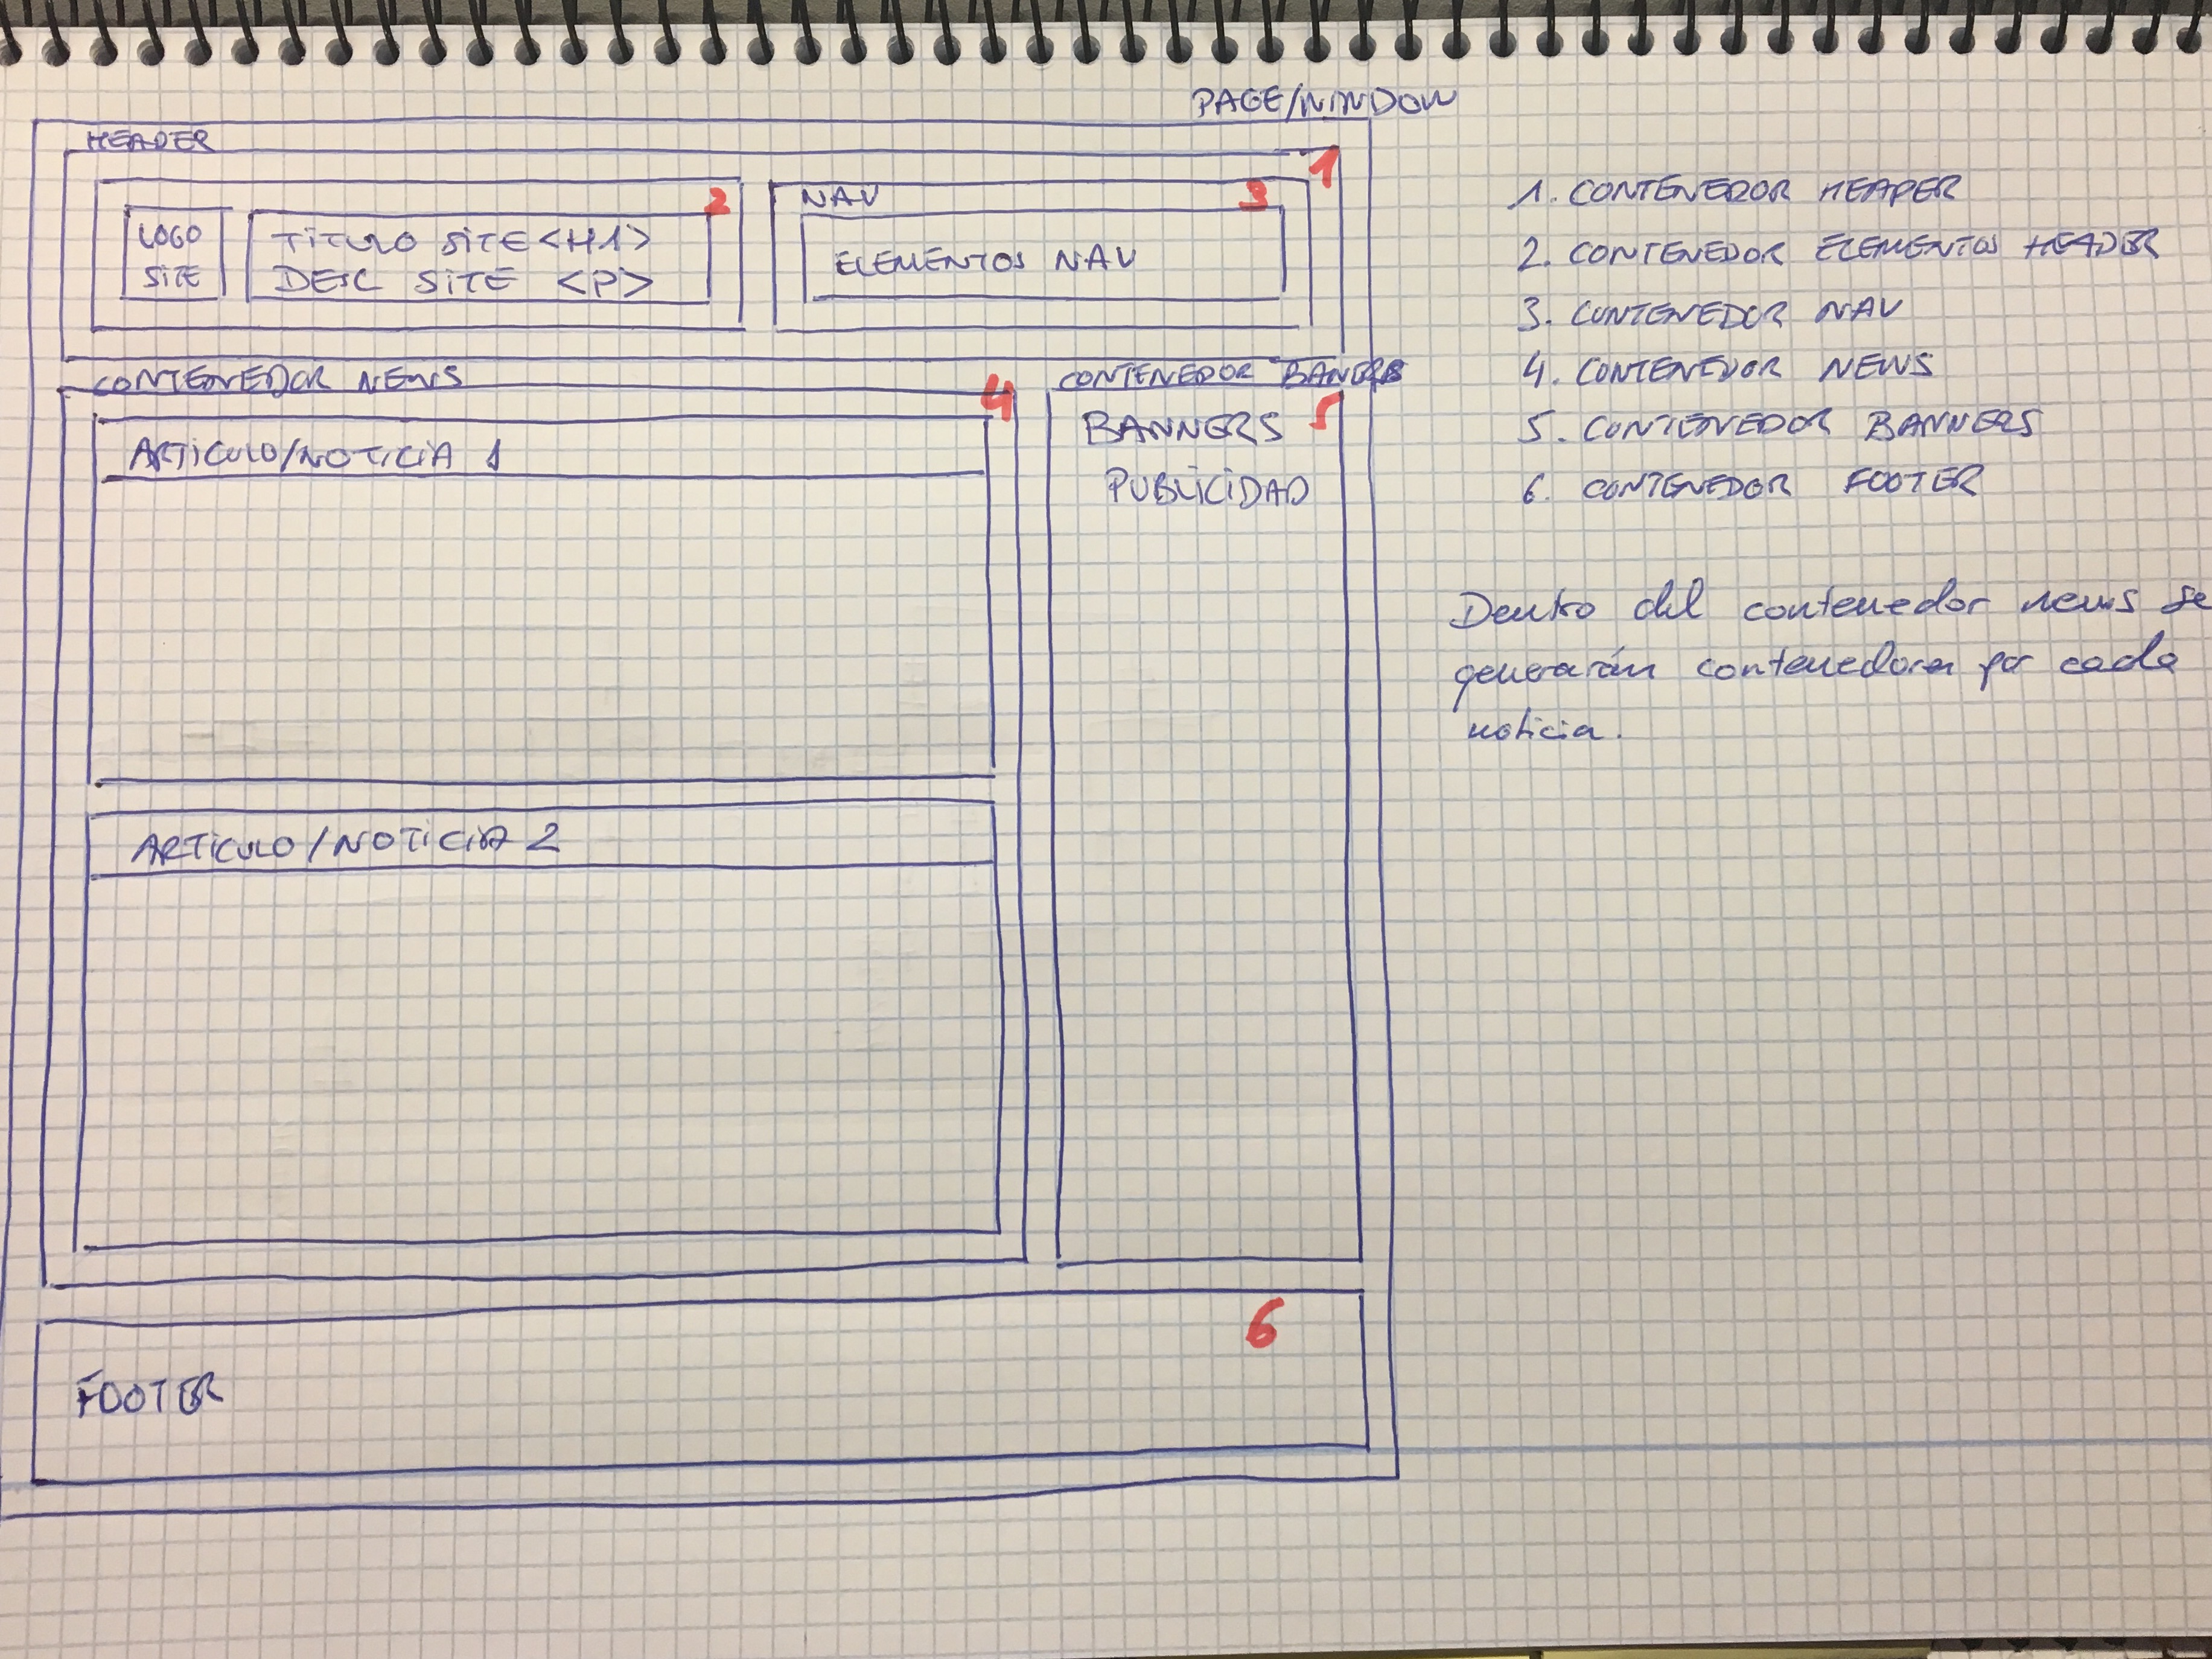 PAGE/WINDOW
HEADER
1
2
LOGO
SITE
TITULO SITE <H1>
DESC SITE <P>
NAV
3
ELEMENTOS NAV
CONTENEDOR NEWS
4
ARTICULO/NOTICIA 1
ARTICULO/NOTICIA 2
CONTENEDOR BANERS
5
BANNERS
PUBLICIDAD
6
FOOTER
1. CONTENEDOR HEADER
2. CONTENEDOR ELEMENTOS HEADER
3. CONTENEDOR NAV
4. CONTENEDOR NEWS
5. CONTENEDOR BANNERS
6. CONTENEDOR FOOTER
Dentro del contenedor news se
generarán contenedores por cada
noticia.